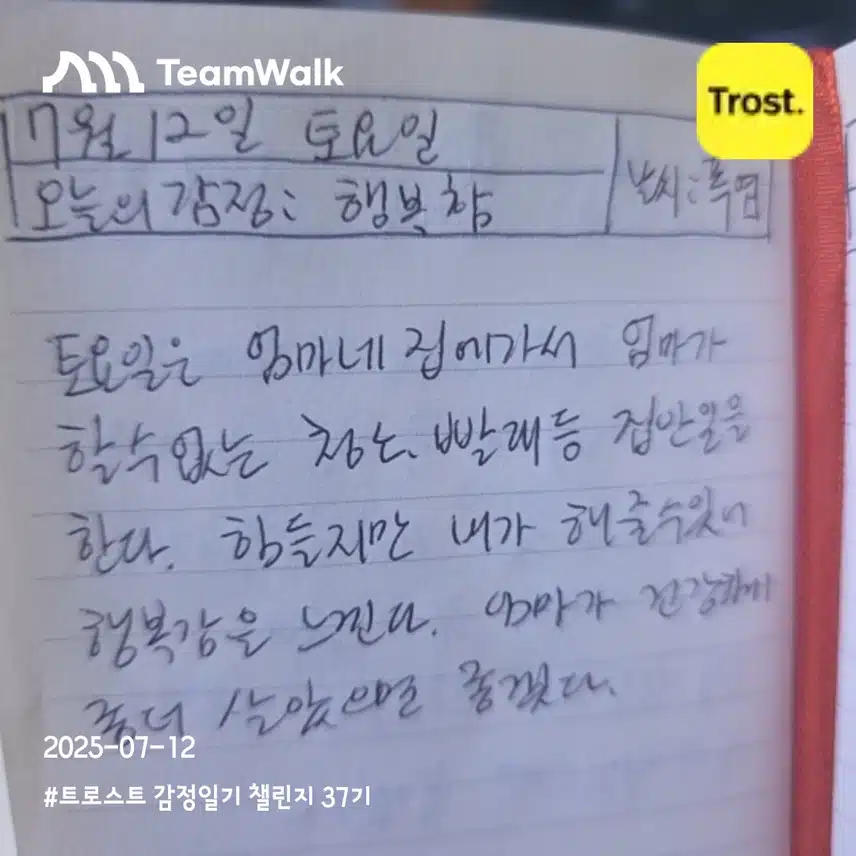 TeamWalk
Trost.
7월 12일 토요일
오늘의 감정: 행복함
날씨: 폭염
토요일은 엄마네 집에가서 엄마가
할수없는 청소, 빨래등 집안일을
한다. 힘들지만 내가 해줄수있어
행복감을 느낀다. 엄마가 건강하게
좀더 살았으면 좋겠다.
2025-07-12
#트로스트 감정일기 챌린지 37기